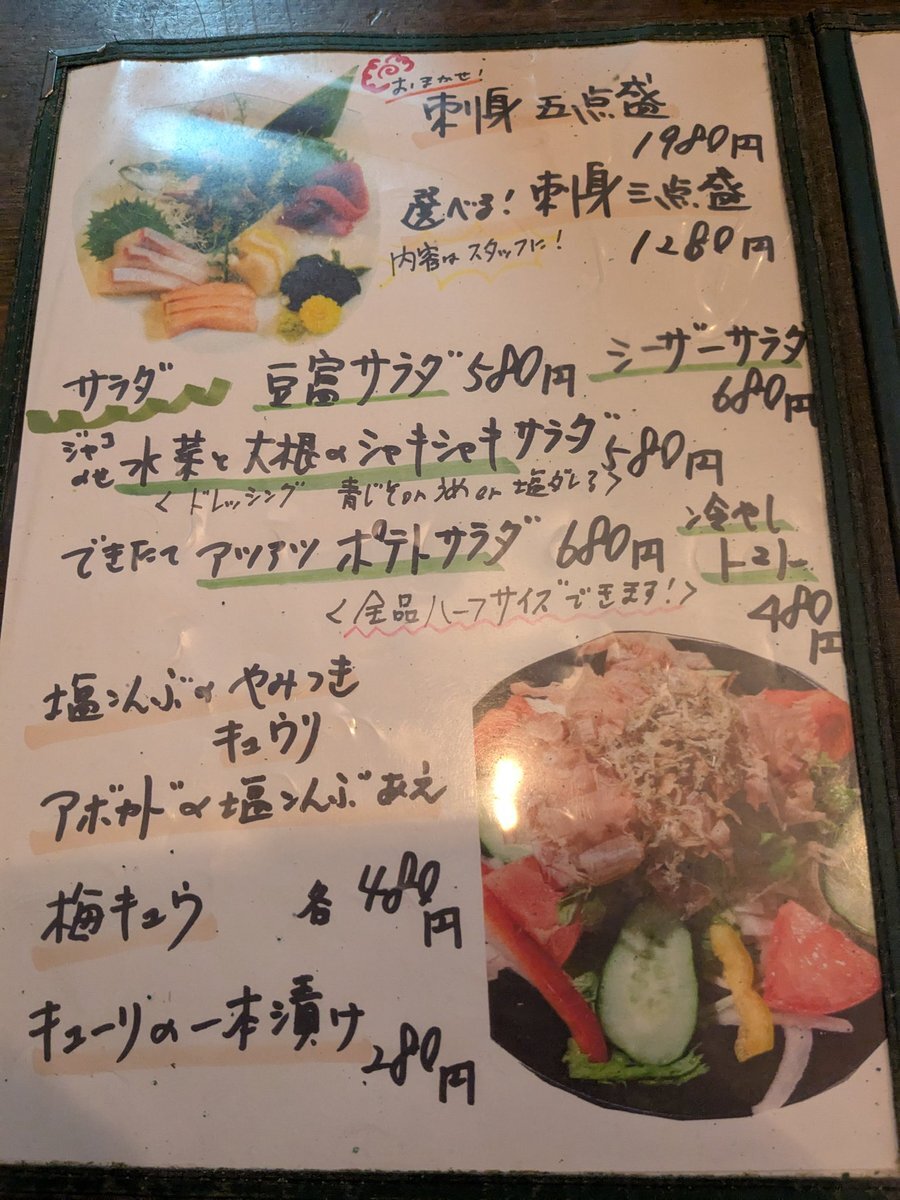 おまかせ!
刺身 五点盛
1980円
選べる! 刺身 三点盛
内容はスタッフに! 1280円
サラダ 豆富サラダ 580円 シーザーサラダ
680円
ジャコ
のせ 水菜と大根のシャキシャキサラダ 580円
<ドレッシング 青じそorうめor塩ダレ>
できたて アツアツ ポテトサラダ 680円 冷やし
トマト
<全品ハーフサイズできます!> 480
円
塩こんぶのやみつき
キュウリ
アボカドの塩こんぶあえ
梅キュウ 各 480
円
キューリの一本漬け
280円